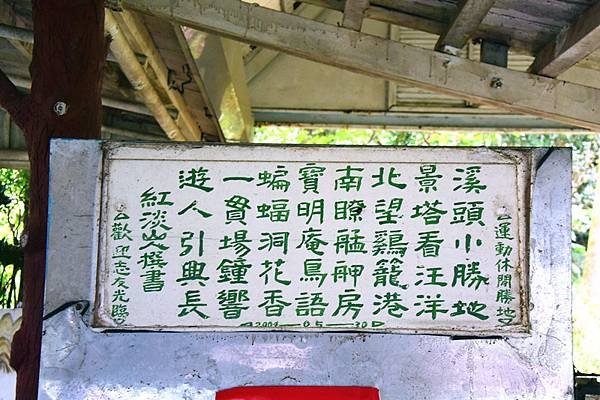 運動休閒勝地
溪頭小勝地
景塔看汪洋
北望鷄籠港
南瞭艋舺房
寶明庵鳥語
蝙蝠洞花香
一貫場鐘響
遊人引興長
紅淡山撰書
歡迎志友光臨
2004-05-30